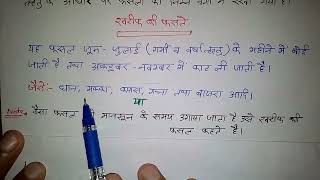 ऋतु के आधार पर फसलों को निम्न वर्गों में रखा गया है।
खरीफ की फसलें
यह फसल जून-जुलाई (गर्मी व वर्षा ऋतु) के महीने में बोई
जाती है तथा अक्टूबर-नवम्बर में काट ली जाती है।
जैसे:- धान, मक्का, कपास, गन्ना तथा बाजरा आदि।
या
वैसा फसल मानसून के समय उगाया जाता है उसे खरीफ की
फसल कहते हैं।